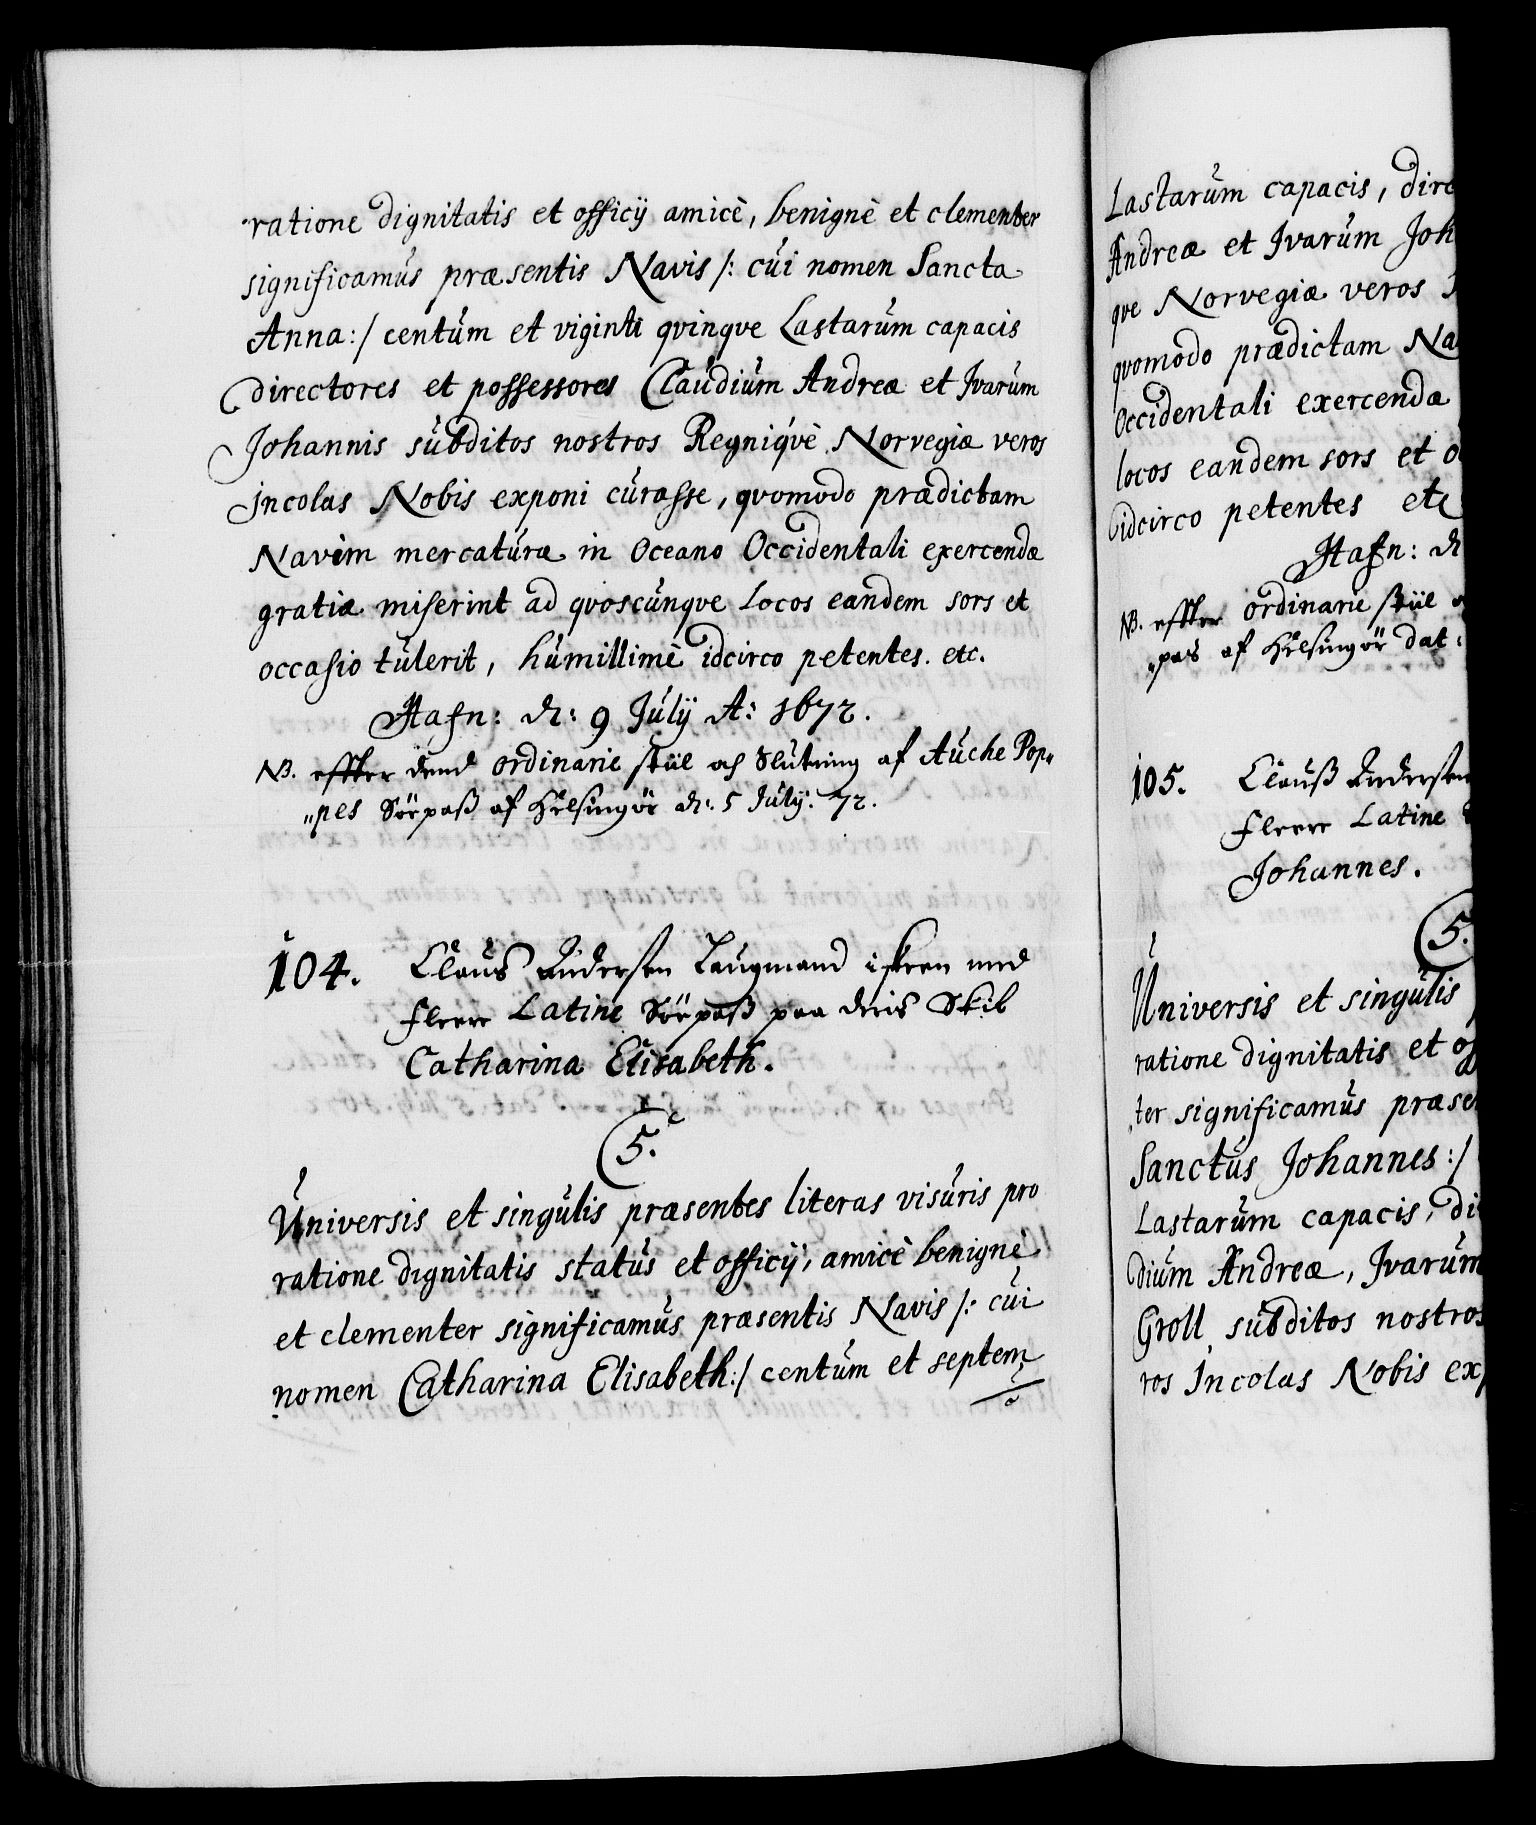 ratione dignitatis et officij amicè, benignè et clementer
significamus præsentis Navis /: cui nomen Sancta
Anna :/ centum et viginti qvinqve Lastarum capacis
directores et possessores Claudium Andreæ et Ivarum
Johannis subditos nostros Regniqvè Norvegiæ veros
incolas Nobis exponi curasse, qvomodo prædictam
Navim mercaturæ in Oceano Occidentali exercendæ
gratia miserint ad qvoscunqve Locos eandem sors et
occasio tulerit, humillimè idcirco petentes. etc.
Hafn: d: 9 Julij A: 1672.
NB. effter dend ordinarie stiil och Slutning af Auche Pop„
„pes Söepaß af Helsingör d: 5 July. 72.
104. Claus Andersen Laugmand i skeen med
fleere Latine Söepaß paa deris Skib
Catharina Elisabeth.
C 5.
Universis et singulis præsentes literas visuris pro
ratione dignitatis status et officij, amicè benignè
et clementer significamus præsentis Navis /: cui
nomen Catharina Elisabeth :/ centum et septem
Lastarum capacis, dire
Andreæ et Ivarum Joh
qve Norvegiæ veros
qvomodo prædictam Na
Occidentali exercendæ
locos eandem sors et o
idcirco petentes etc
Hafn: d
NB. effter ordinarie stiil
„pas af Helsingör dat:
105. Clauß Andersen
fleere Latine
Johannes.
C 5.
Universis et singulis
ratione dignitatis et of
„ter significamus præse
Sanctus Johannes :/
Lastarum capacis, di
dium Andreæ, Ivarum
Groll subditos nostros
ros Incolas Nobis exp